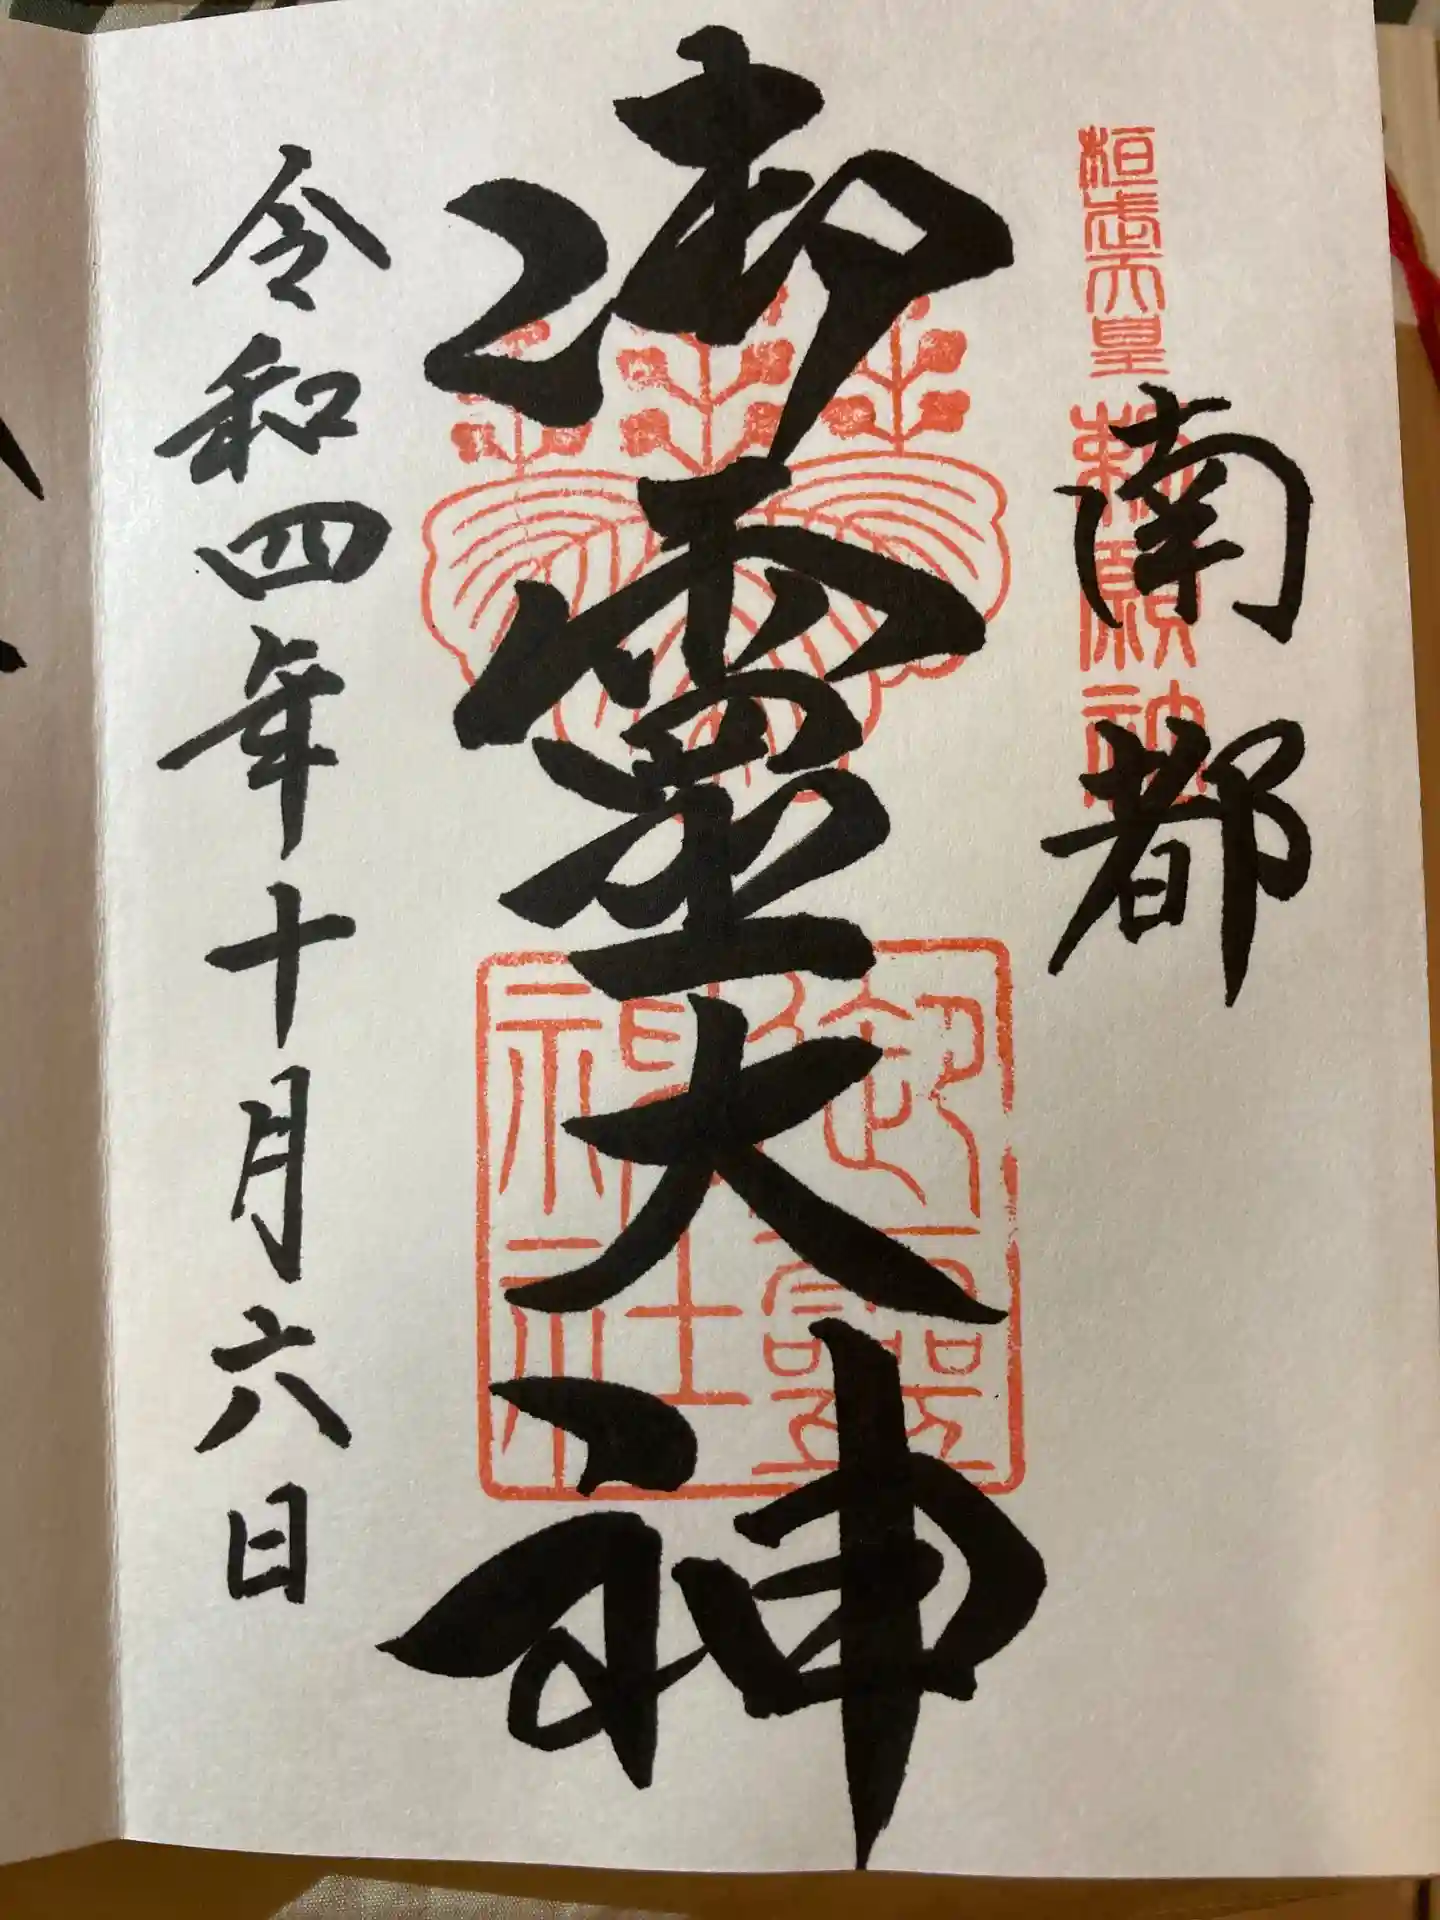 桓武天皇勅願社
南都
御霊大神
御霊神社
令和四年十月六日